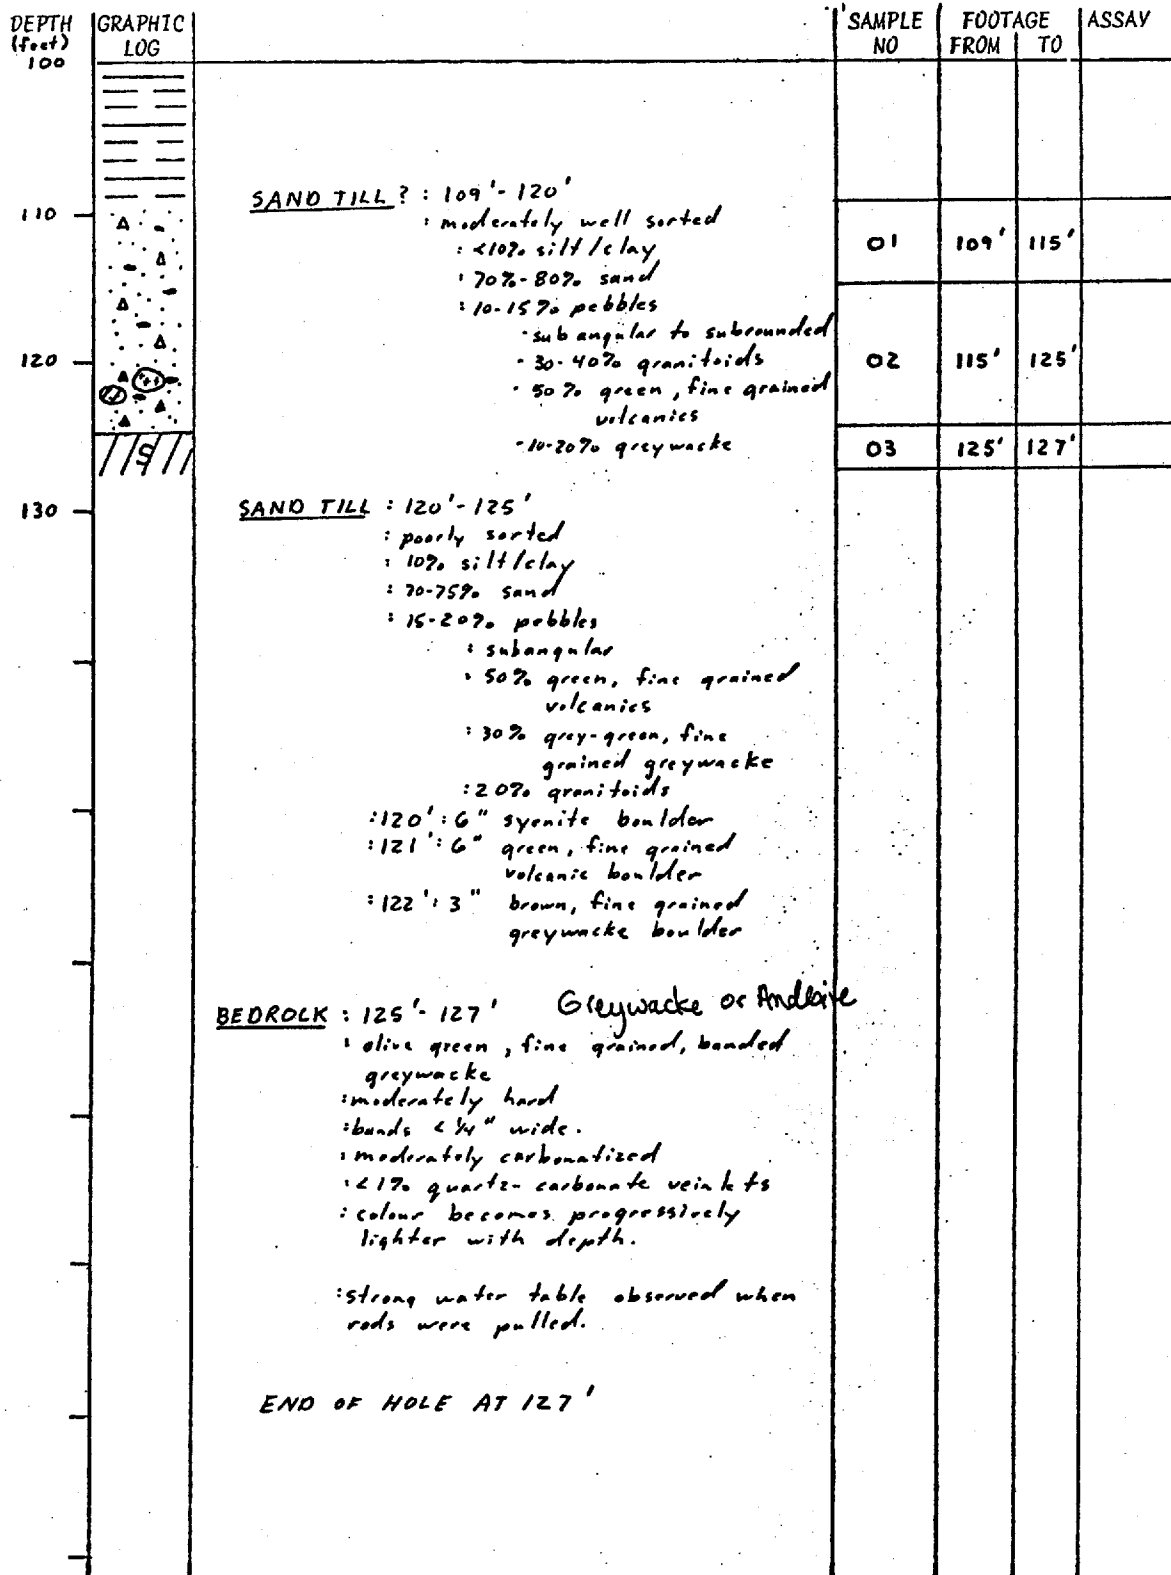 DEPTH (feet) GRAPHIC LOG SAMPLE NO FOOTAGE FROM TO ASSAY
100
SAND TILL? : 109'-120'
110
: moderately well sorted
: <10% silt/clay
01 109' 115'
: 70%-80% sand
: 10-15% pebbles
- sub angular to subrounded
120
- 30-40% granitoids
02 115' 125'
- 50% green, fine grained
volcanics
- 10-20% greywacke
03 125' 127'
S
130
SAND TILL : 120'-125'
: poorly sorted
: 10% silt/clay
: 70-75% sand
: 15-20% pebbles
: subangular
: 50% green, fine grained
volcanics
: 30% grey-green, fine
grained greywacke
: 20% granitoids
:120': 6" syenite boulder
:121': 6" green, fine grained
volcanic boulder
:122': 3" brown, fine grained
greywacke boulder
BEDROCK : 125'-127' Greywacke or
: olive green, fine grained, banded
greywacke
:moderately hard
:bands < 1/4" wide.
: moderately carbonatized
: <1% quartz-carbonate veinlets
: colour becomes progressively
lighter with depth.
:strong water table observed when
rods were pulled.
END OF HOLE AT 127'